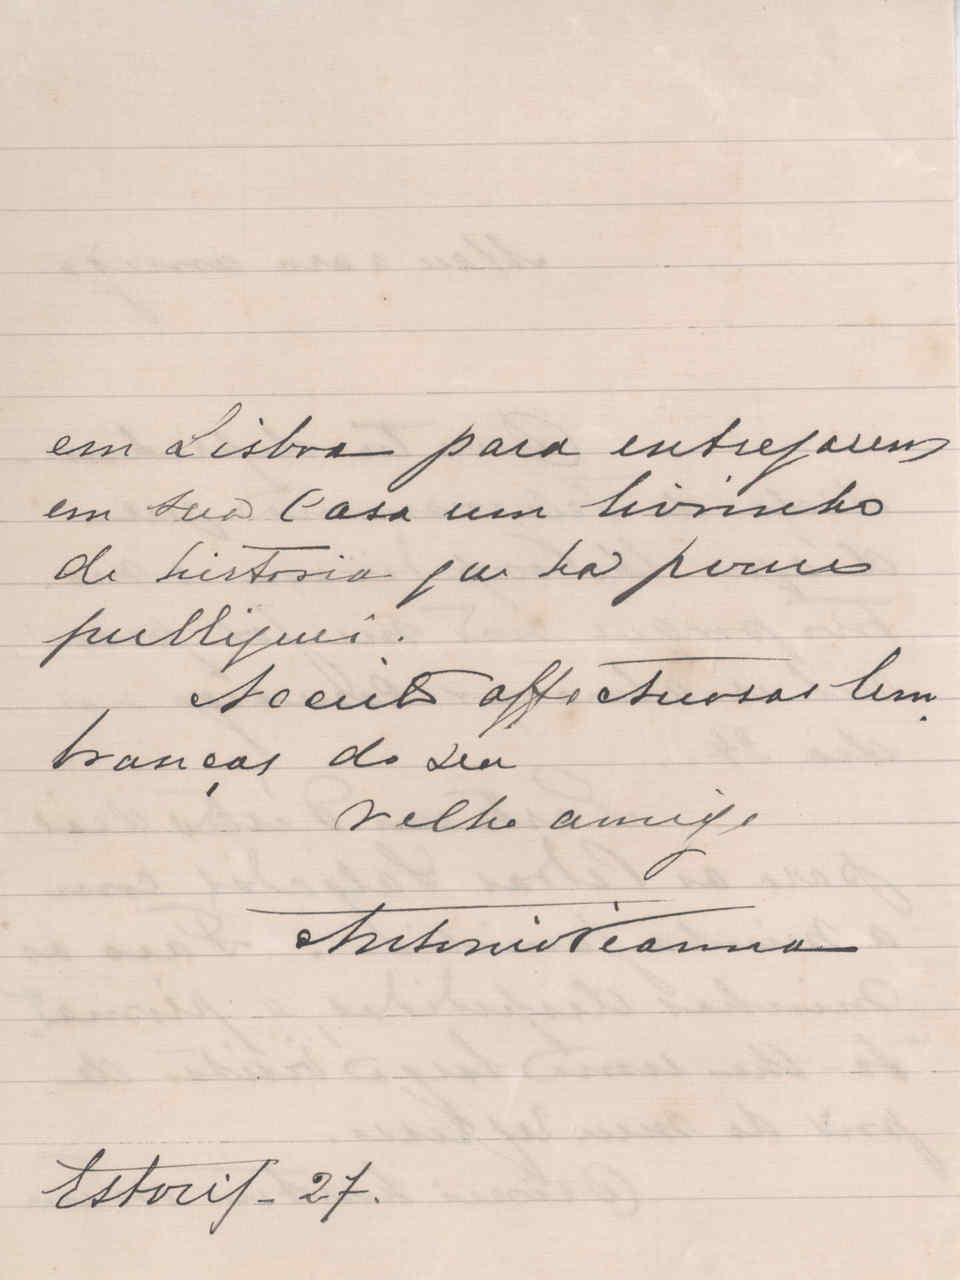 em Lisboa para entregarem
em sua Casa um livrinho
de historia que ha pouco
publiquei.
Acceite affectuosas lem
branças do seu
velho amigo
Antonio Vianna
Estoril - 27.